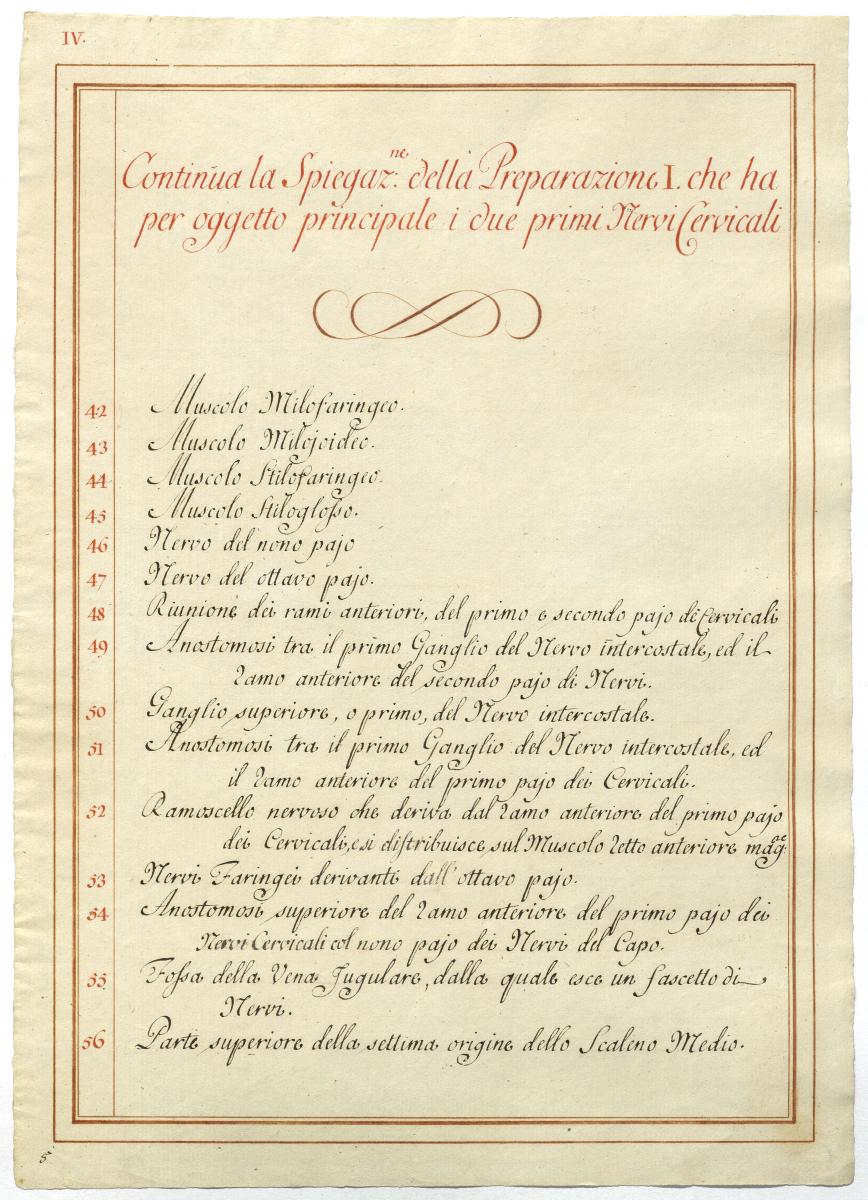 IV.
Continua la Spiegaz.ne della Preparazione I. che ha
per oggetto principale i due primi Nervi Cervicali
42 Muscolo Milofaringeo.
43 Muscolo Milojoideo.
44 Muscolo Stilofaringeo.
45 Muscolo Stiloglosso.
46 Nervo del nono pajo
47 Nervo del ottavo pajo.
48 Riunione dei rami anteriori, del primo e secondo pajo dei Cervicali
49 Anostomosi tra il primo Ganglio del Nervo intercostale, ed il
ramo anteriore del secondo pajo di Nervi.
50 Ganglio superiore, o primo, del Nervo intercostale.
51 Anostomosi tra il primo Ganglio del Nervo intercostale, ed
il ramo anteriore del primo pajo dei Cervicali.
52 Ramoscello nervoso che deriva dal ramo anteriore del primo pajo
dei Cervicali, e si distribuisce sul Muscolo retto anteriore mag.re
53 Nervi Faringei derivanti dall'ottavo pajo.
54 Anostomosi superiore del ramo anteriore del primo pajo dei
Nervi Cervicali col nono pajo dei Nervi del Capo.
55 Fossa della Vena Jugulare, dalla quale esce un fascetto di
Nervi.
56 Parte superiore della settima origine dello Scaleno Medio.
5